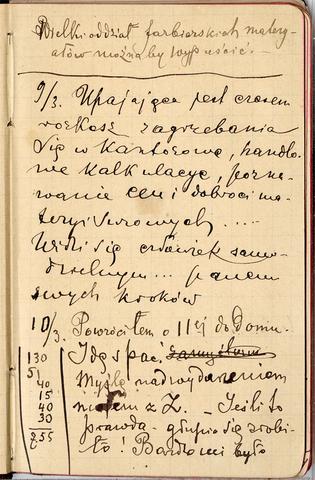 Wielki oddział farbierskich matery-
ałów można by wypuścić. -
9/3. Upajające jest czasem
rozkosz zagrzebania
się w kantorowe, handlo-
we kalkulacye, porów-
wanie cen i dobroci ma-
teryi surowych . . . .
Widzi się człowiek samo-
dzielnym . . . panem
swych kroków
10/3. Powróciłem o 11ej do Domu.
Idę spać
Myślę nad wydarzeniem
z Z. _ Jeśli to
prawda - głupio się zrobi-
ło! Bardzo mi było
130
5
40
15
40
30
255